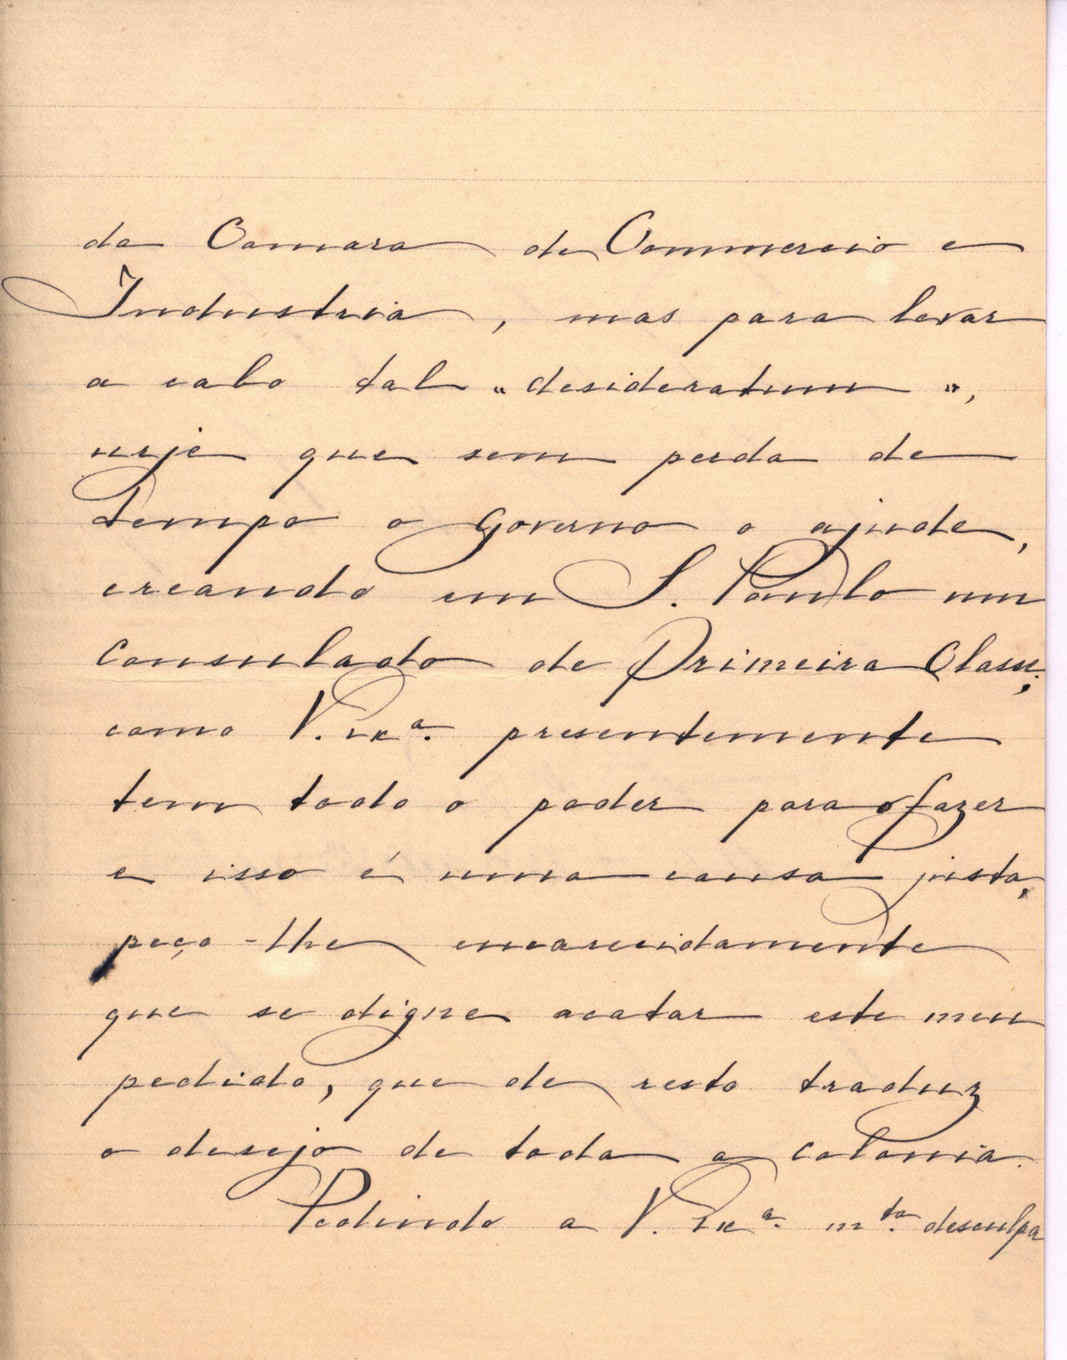 da Camara de Commercio e
Industria, mas para levar
a cabo tal "desideratum",
urje que sem perda de
tempo o Governo o ajude,
creando em S. Paulo um
Consulado de Primeira Classe;
como V. Exª. presentemente
tem todo o poder para o fazer
e isso é uma causa justa,
peço-lhe encarecidamente
que se digne acatar este meu
pedido, que de resto traduz
o desejo de toda a colonia.
Pedindo a V. Exª. mᵗᵃ. desculpa